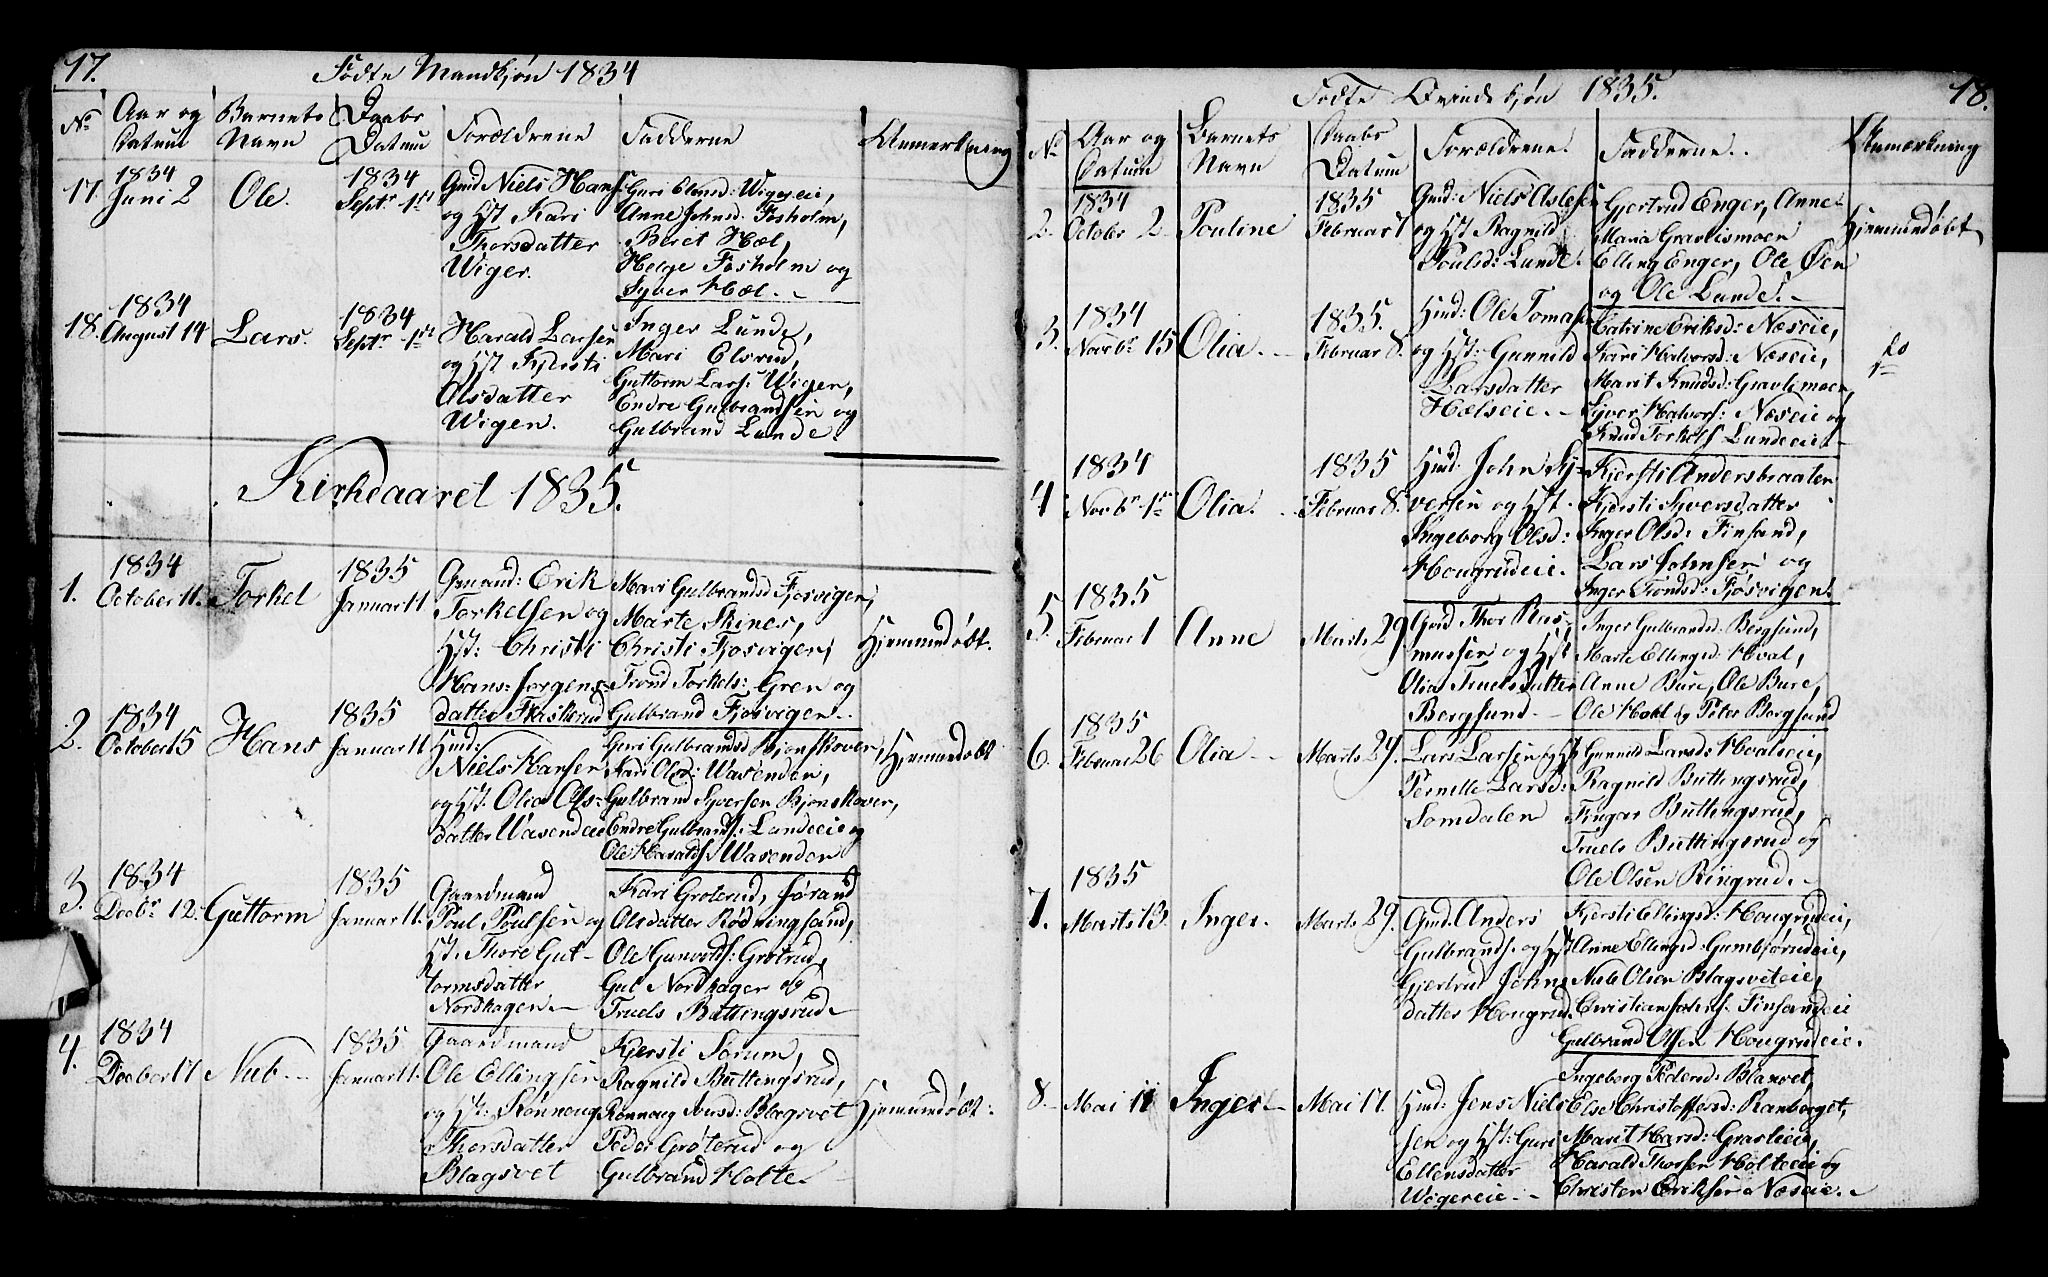 17.
Fødte Mandkjøn 1834
No
Aar og Datum
Barnets Navn
Daabs Datum
Forældrene
Fadderne
Anmerkning
17.
1834
Juni 2
Ole.
1834
Septr. 1st
Gmd Niels Hans:
og Hst Kari
Thorsdatter
Wiger.
Guri Elend: Wigereie,
Anne Johnsd: Fosholm,
Beret Hæl,
Helge Fosholm og
Syver Hæl. -
18.
1834
August 14
Lars.
1834
Septr. 1st
Harald Larsen
og Hst Kjersti
Olsdatter
Wigen.
Inger Lunde,
Mari Elsrud,
Guttorm Lars: Wigen,
Endre Gulbrandsen og
Gulbrand Lunde.
Kirkeaaret 1835.
1.
1834
October 11.
Torkel
1835
Januar 11
Gmand: Erik
Torkelsen og
Hst: Christi
Hans: Jorgens-
datter
Mari Gulbrandsd Fjosvigen,
Marte Skines,
Christi Fjosvigen,
Trond Torkels: Gren og
Gulbrand Fjosvigen.
Hjemmedøbt.
2.
1834
October 15
Hans
1835
Januar 11
Hmd:
Niels Hansen
og Hst. Olia Ols-
datter Wasendeie
Guri Gulbrandsd Bjonskover,
Kari Olsd: Wasenden,
Gulbrand Syversen Bjonskover,
Endre Gulbrands: Lundeeie og
Ole Haralds: Wasenden
Hjemmedøbt
3.
1834
Decbr. 12.
Guttorm
1835
Januar 11.
Gaardmand
Poul Poulsen og
Hst. Thore Gut-
tormsdatter
Nordhagen. -
Kari Groterud, Jørand
Olsdatter Rødningsand,
Ole Gunvolds: Grøtrud,
Gul Nordhagen og
Truels Buttingsrud
4.
1834
Decber 17
Nub -
1835
Januar 11.
Gaardmand
Ole Ellingsen
og Hst: Rønnoug
Thorsdatter
Blagsvet
Kjersti Sorum,
Ragnild Buttingsrud,
Rønnoug Iversd: Blagsvet
Peder Grøterud og
Gulbrand Holte. -
Hjemmedøbt:
18.
Fødte Qvindekjøn 1835.
No
Aar og Datum
Barnets Navn
Daabs Datum
Forældrene.
Fadderne.
Anmærkning
2.
1834
Octobr 2
Pouline
1835
Februar 1
Gmd: Niels Aslesen
og Hst Ragnild
Poulsd: Lunde.
Gjertrud Enger, Anne
Maria Gravlismoen
Elling Enger, Ole Øen
og Ole Lunde. -
Hjemmedøbt
3.
1834
Novebr 15
Olia. -
1835.
Februar 8.
Hmd: Ole Tomasen
og Hst: Gunnild
Larsdatter
Hælseie. -
Catrine Eriksd: Næseie,
Kari Halvorsd: Næseie,
Marit Knudsd: Gravlimoen,
Syver Halvors: Næseie og
Knud Torkels Lundeeie
do
4
1834
Novbr 1ste
Olia. -
1835
Februar 8.
Hmd: John Sy-
versen og Hst.
Ingeborg Olsd:
Hougrudeie.
Kjersti Andersbraaten
Kjersti Syversdatter
Inger Olsd: Finsand,
Lars Johnsen og
Inger Tronds: Fjøsvigen.
5.
1835
Februar 1
Anne
Marts 29
Gmd Thor Ras-
mussen og Hst
Olia Truelsdatter
Bergsund. -
Inger Gulbrandsd: Bergsund,
Marte Ellingsd: Hval,
Anne Bure, Ole Bure,
Ole Hval og Peter Bergsund
6.
1835
Februar 26
Olia -
Marts 29.
Lars Larsen og Hst
Pernille Larsd:
Somdalen
Gunnild Larsd: Hvaleeie,
Ragnild Buttingsrud,
Fingar Buttingsrud,
Truels Buttingsrud og
Ole Olsen Ringrud. -
7.
1835
Marts 13
Inger.
Marts 29.
Gmd. Anders
Gulbrands: og Hst
Gjertrud Johns-
datter Hougrud
Kjersti Ellingsd: Hougrudeie,
Anne Ellingsd: Gumbjørudeie,
Nub Olsen Blagsveteie,
Christian Johns: Finsandeie
Gulbrand Olsen Hougrudeie.
8.
Mai 11
Inger -
Mai 17.
Hmd: Jens Niels-
sen og Hst: Guri
Ellensdatter
Wigereie. -
Ingeborg Pedersd: Blaxvet,
Else Christoffersd: Ranborget,
Marit Harsd: Gravlieie,
Harald Thorsen Holteeie og
Christen Eriksen Næseie. -